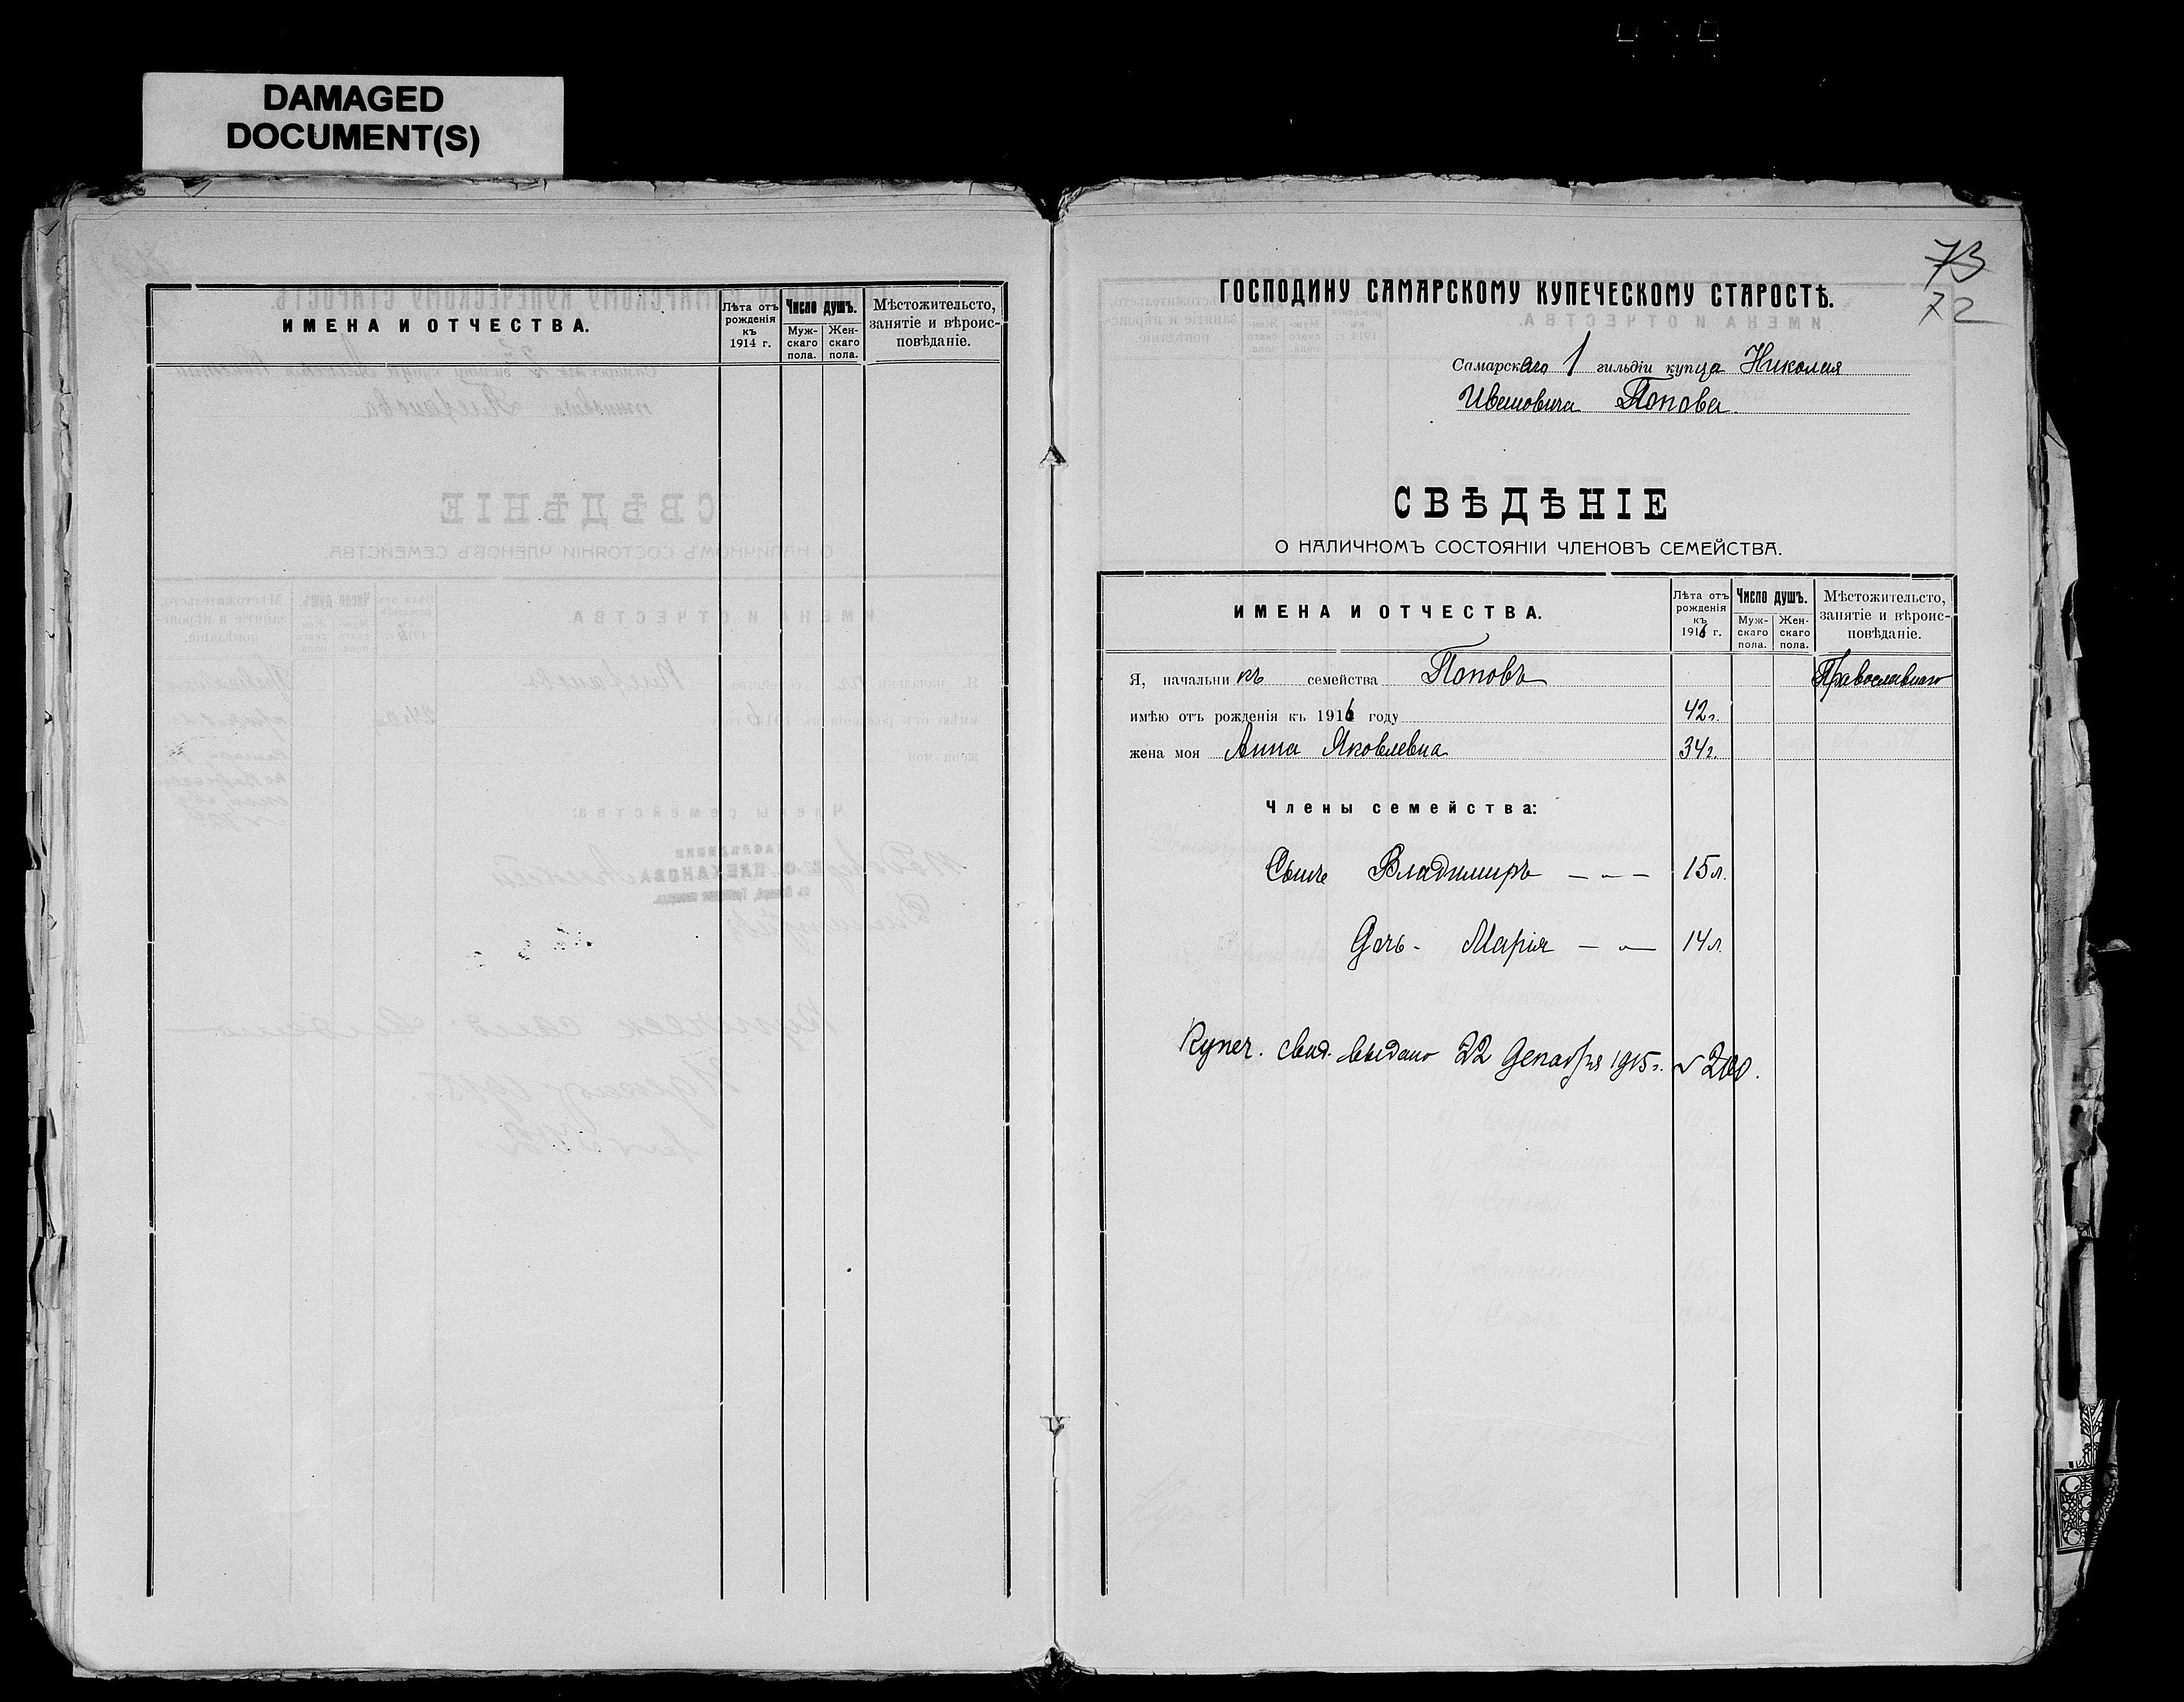 DAMAGED
DOCUMENT(S)
ИМЕНА И ОТЧЕСТВА.
Лѣта отъ рожденія къ 1914 г.
Число душъ.
Муж-скаго пола.
Жен-скаго пола.
Мѣстожительсто, занятіе и вѣроис-повѣданіе.
73
72
ГОСПОДИНУ САМАРСКОМУ КУПЕЧЕСКОМУ СТАРОСТѢ.
Самарскаго 1 гильдіи купца Николая
Ивановича Попова.
СВѢДѢНІЕ
О НАЛИЧНОМЪ СОСТОЯНІИ ЧЛЕНОВЪ СЕМЕЙСТВА.
ИМЕНА И ОТЧЕСТВА.
Лѣта отъ рожденія къ 1916 г.
Число душъ.
Муж-скаго пола.
Жен-скаго пола.
Мѣстожительсто, занятіе и вѣроис-повѣданіе.
Я, начальникъ семейства Поповъ Православнаго
имѣю отъ рожденія къ 1916 году 42г.
жена моя Анна Яковлевна 34г.
Члены семейства:
Сынъ Владимиръ — — — 15л.
Дочь - Марія — — 14л.
Купеч. свид. выдано 22 Декабря 1915г.